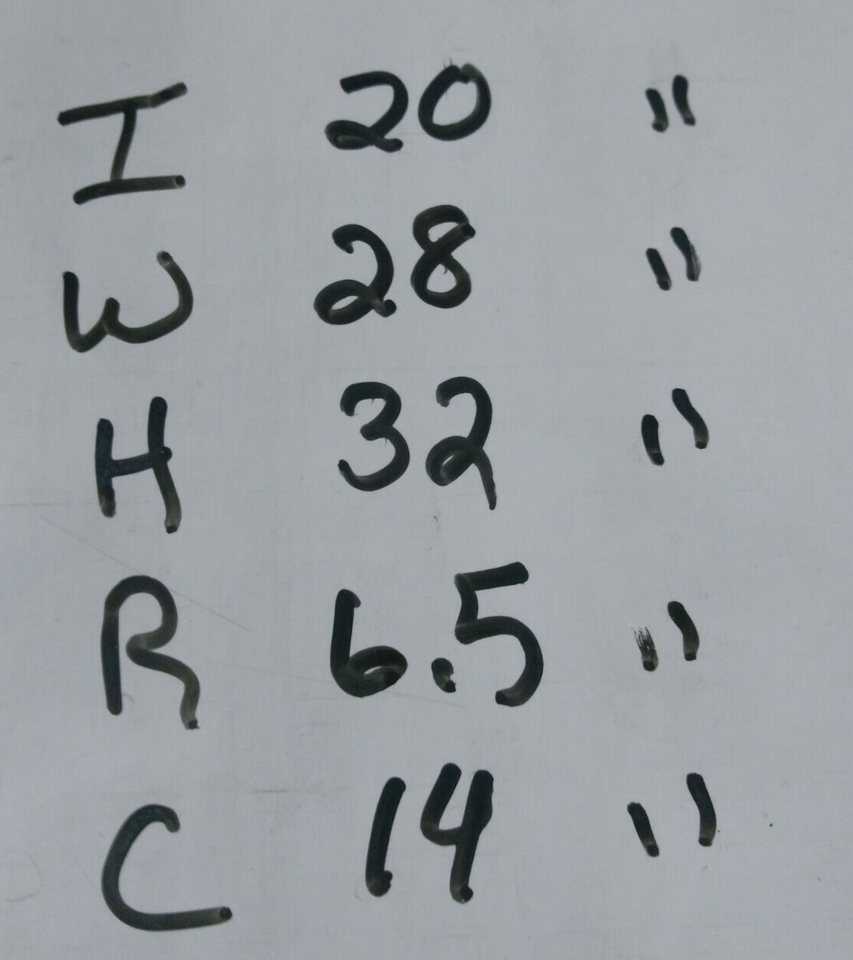 I 20 "
W 28 "
H 32 "
R 6.5 "
C 14 "